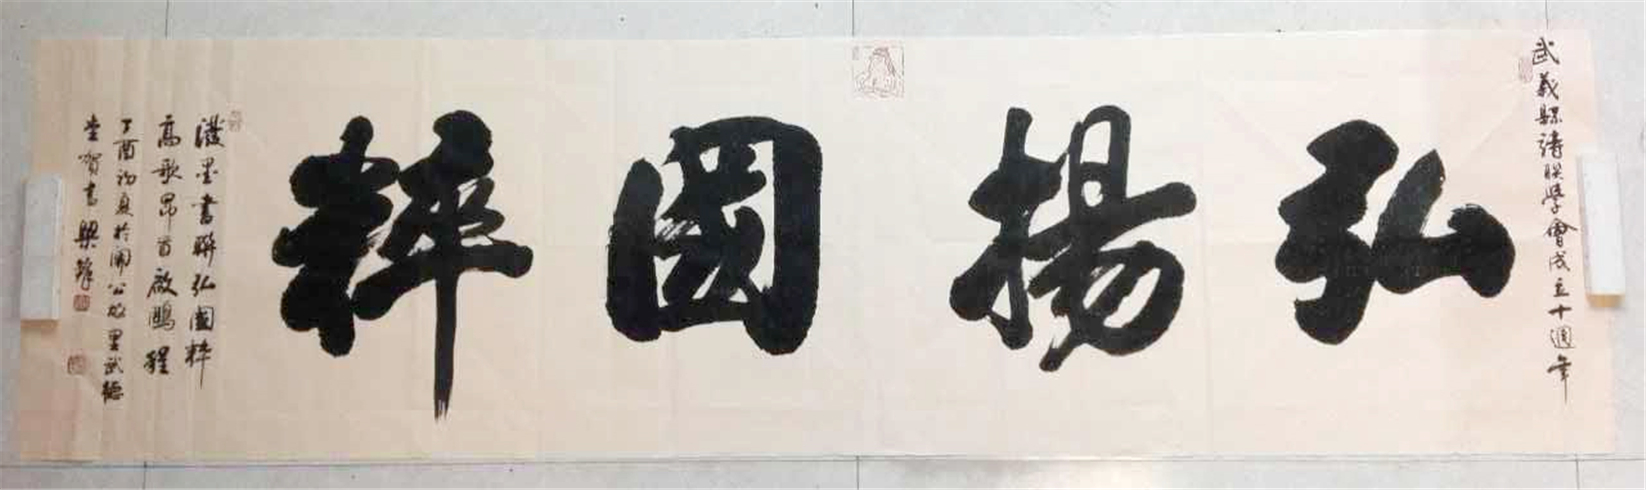 武義縣詩联學會成立十週年
弘揚國粹
潑墨書聯弘國粹
高歌昂首啟鵬程
丁酉初夏於關公故里武德
堂賀書 梁